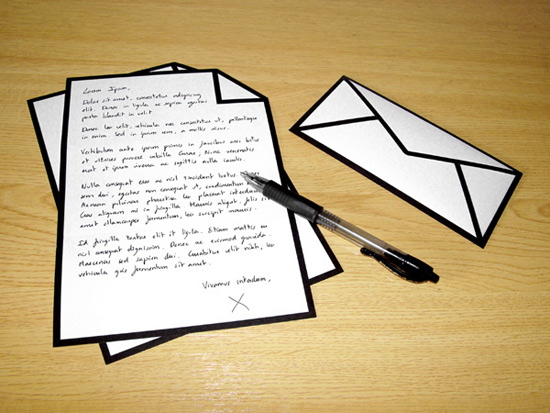 Lorem Ipsum,
Dolor sit amet, consectetur adipiscing
elit. Donec in ligula ac sapien egestas
porta blandit in velit.
Donec leo velit, vehicula nec consectetur ut, pellentesque
in enim. Sed in ipsum sem, a mattis risus.
Vestibulum ante ipsum primis in faucibus orci luctus
et ultrices posuere cubilia Curae; Nunc venenatis
erat et ipsum viverra ac sagittis nulla iaculis.
Nulla consequat eros ac nisl tincidunt luctus
sem dui, egestas non consequat ut, condimentum
Aenean pulvinar pharetra leo placerat interdum.
Cras aliquam mi in fringilla. Mauris aliquet, felis
amet ullamcorper fermentum, leo suscipit mauris
Id fringilla tortor elit et ligula. Etiam mattis
nisl consequat dignissim. Donec ac euismod gravida.
Maecenas sed sapien dui. Curabitur elit nibh,
vehicula quis fermentum sit amet.
Vivamus interdum,
X